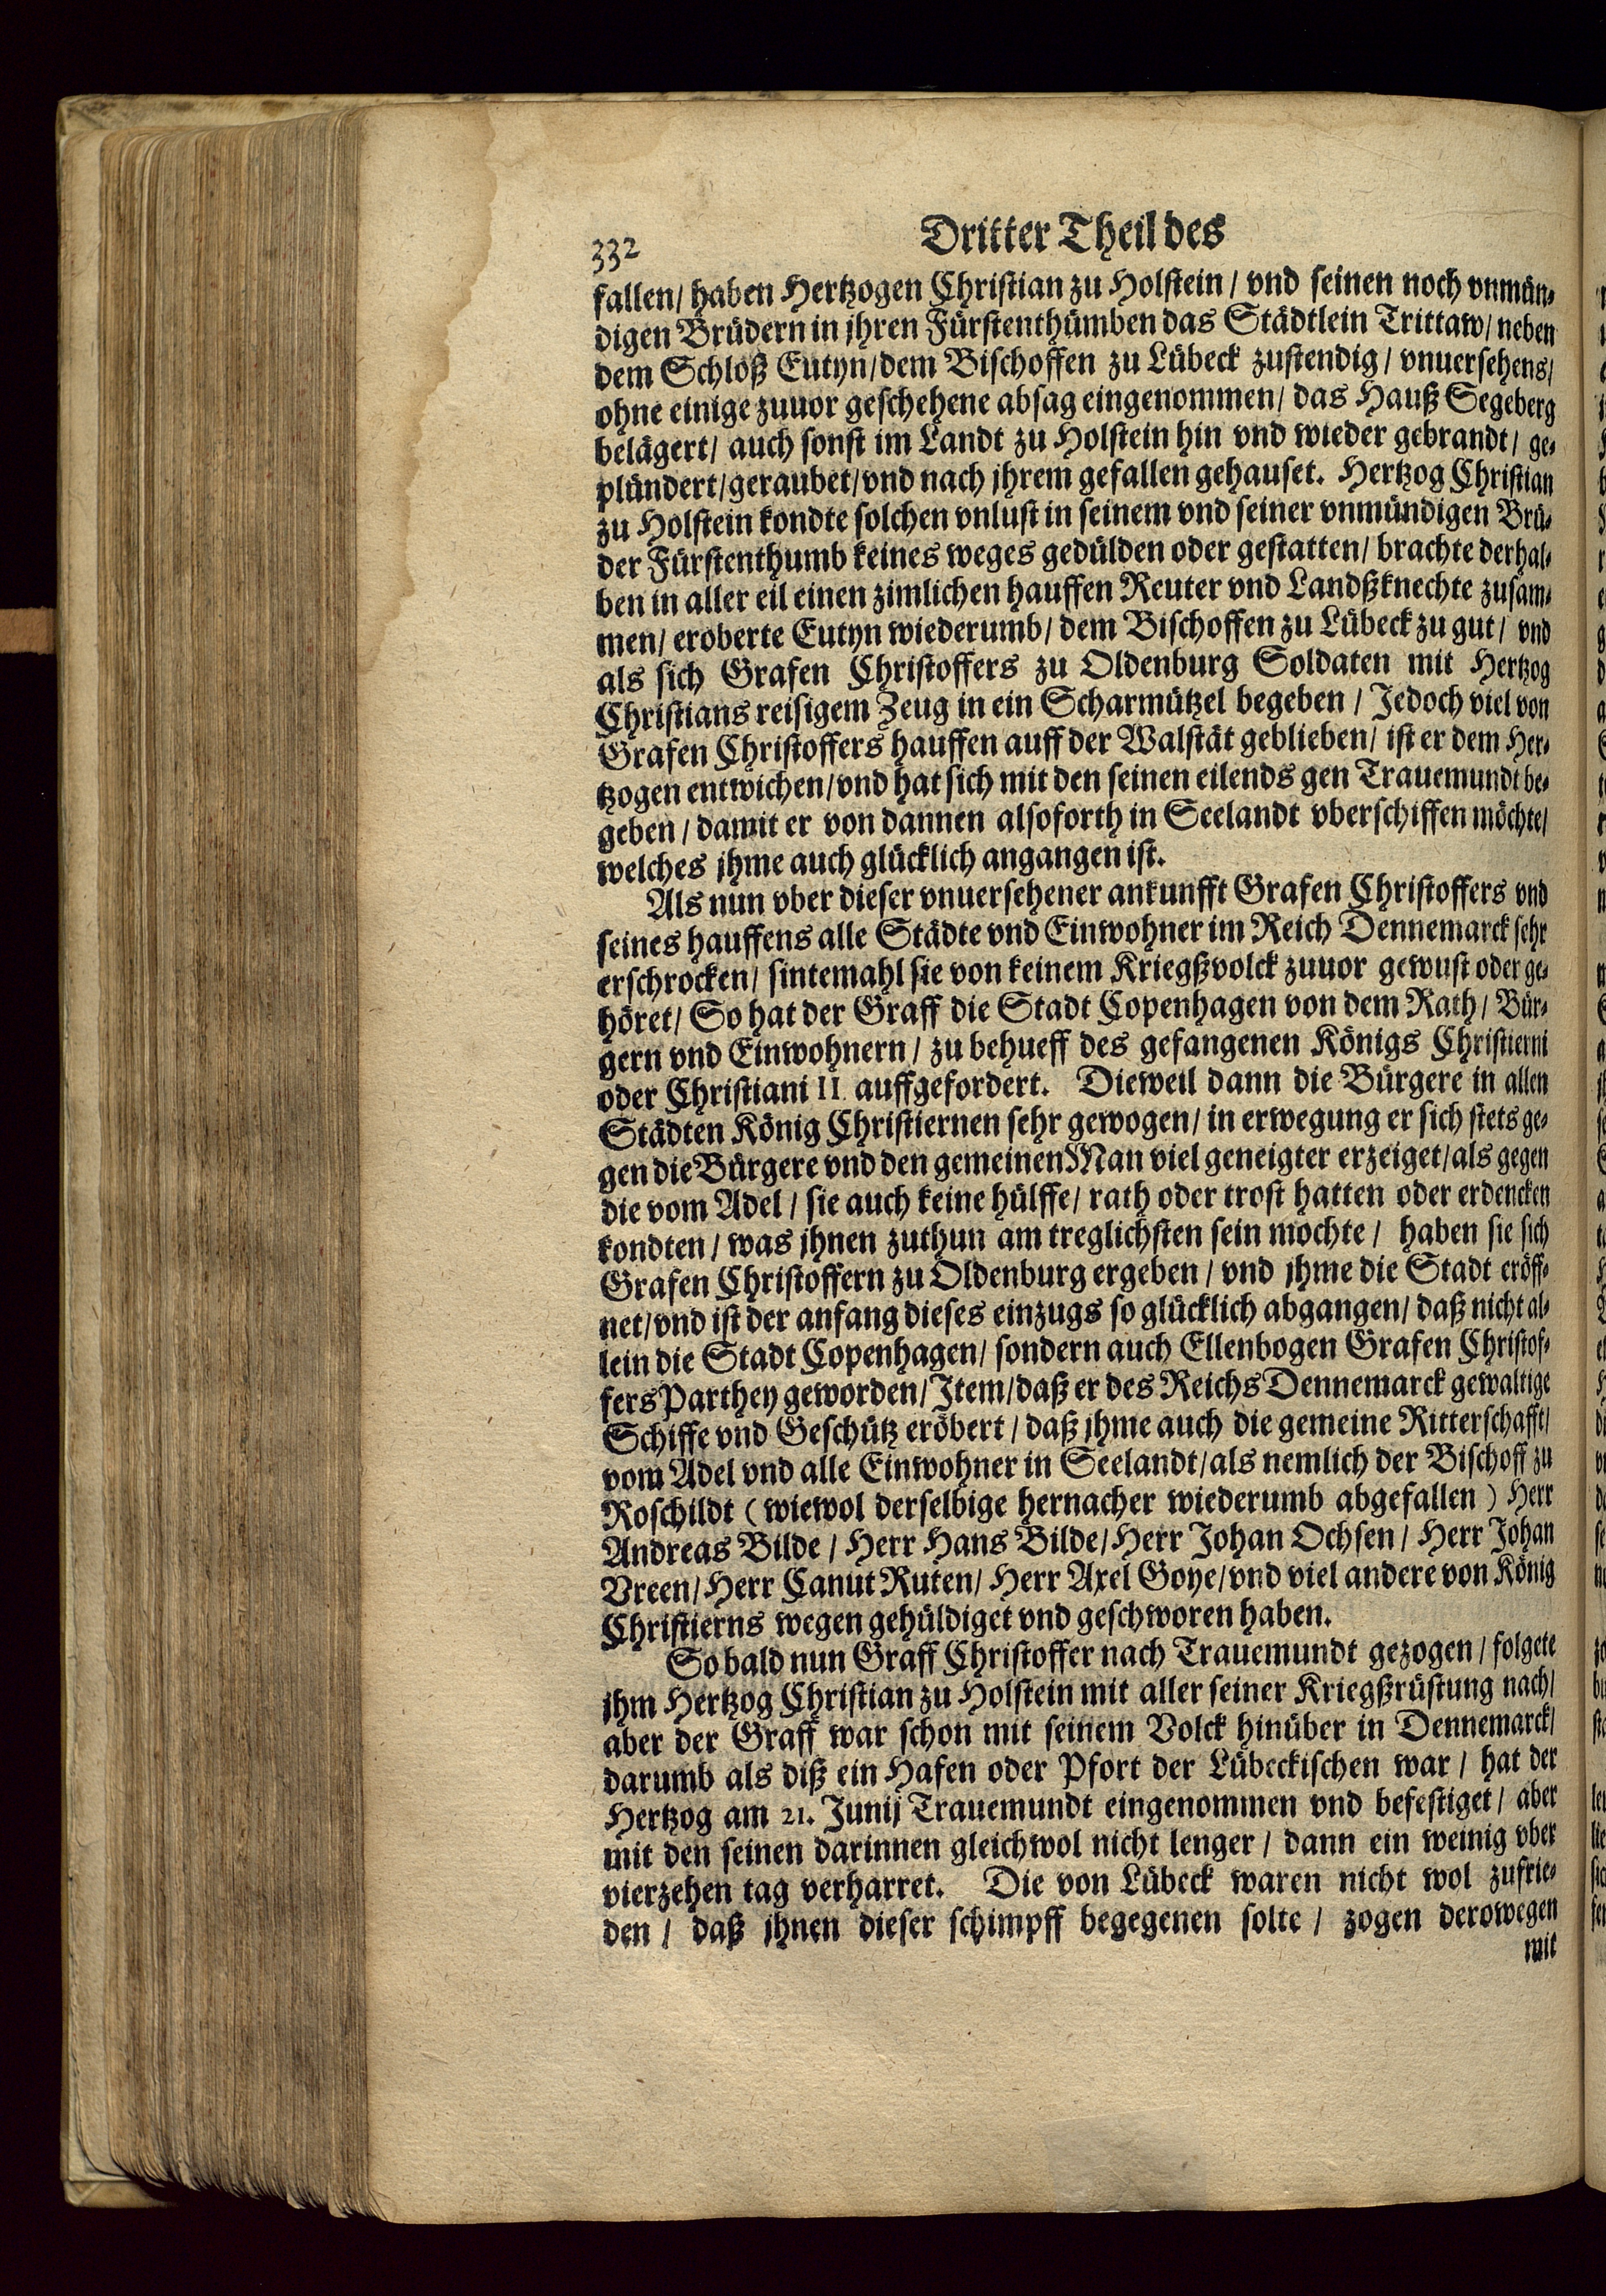 332
Dritter Theil des
fallen/ haben Hertzogen Christian zu Holstein/ vnd seinen noch vnmün⸗
digen Brüdern in jhren Fürstenthümben das Städtlein Trittaw/ neben
dem Schloß Eutyn/dem Bischoffen zu Lübeck zustendig/ vnuersehens/
ohne einige zuuor geschehene absag eingenommen/ das Hauß Segeberg
belägert/ auch sonst im Landt zu Holstein hin vnd wieder gebrandt/ ge⸗
plündert/geraubet/vnd nach jhrem gefallen gehauset. Hertzog Christian
zu Holstein kondte solchen vnlust in seinem vnd seiner vnmündigen Brü⸗
der Fürstenthumb keines weges gedülden oder gestatten/ brachte derhal⸗
ben in aller eil einen zimlichen hauffen Reuter vnd Landßknechte zusam⸗
men/ eroberte Eutyn wiederumb/ dem Bischoffen zu Lübeck zu gut/ vnd
als sich Grafen Christoffers zu Oldenburg Soldaten mit Hertzog
Christians reisigem Zeug in ein Scharmützel begeben/ Jedoch viel von
Grafen Christoffers hauffen auff der Walstät geblieben/ ist er dem Her⸗
tzogen entwichen/vnd hat sich mit den seinen eilends gen Trauemundt be⸗
geben/ damit er von dannen alsoforth in Seelandt vberschiffen möchte/
welches jhme auch glücklich angangen ist.
Als nun vber dieser vnuersehener ankunfft Grafen Christoffers vnd
seines hauffens alle Städte vnd Einwohner im Reich Dennemarck sehr
erschrocken/ sintemahl sie von keinem Kriegßvolck zuuor gewust oder ge⸗
höret/ So hat der Graff die Stadt Copenhagen von dem Rath/ Bür⸗
gern vnd Einwohnern/ zu behueff des gefangenen Königs Christierni
oder Christiani II. auffgefordert. Dieweil dann die Bürgere in allen
Städten König Christiernen sehr gewogen/ in erwegung er sich stets ge⸗
gen die Bürgere vnd den gemeinen Man viel geneigter erzeiget/als gegen
die vom Adel/ sie auch keine hülffe/ rath oder trost hatten oder erdencken
kondten/ was jhnen zuthun am treglichsten sein mochte/ haben sie sich
Grafen Christoffern zu Oldenburg ergeben/ vnd jhme die Stadt eröff⸗
net/vnd ist der anfang dieses einzugs so glücklich abgangen/ daß nicht al⸗
lein die Stadt Copenhagen/ sondern auch Ellenbogen Grafen Christof⸗
fers Parthey geworden/ Item/daß er des Reichs Dennemarck gewaltige
Schiffe vnd Geschütz eröbert/ daß jhme auch die gemeine Ritterschafft/
vom Adel vnd alle Einwohner in Seelandt/als nemlich der Bischoff zu
Roschildt (wiewol derselbige hernacher wiederumb abgefallen) Herr
Andreas Bilde/ Herr Hans Bilde/Herr Johan Ochsen/ Herr Johan
Vreen/Herr Canut Ruten/ Herr Axel Goye/vnd viel andere von König
Christierns wegen gehüldiget vnd geschworen haben.
So bald nun Graff Christoffer nach Trauemundt gezogen/ folgete
jhm Hertzog Christian zu Holstein mit aller seiner Kriegßrüstung nach/
aber der Graff war schon mit seinem Volck hinüber in Dennemarck/
darumb als diß ein Hafen oder Pfort der Lübeckischen war/ hat der
Hertzog am 21. Junij Trauemundt eingenommen vnd befestiget/ aber
mit den seinen darinnen gleichwol nicht lenger/ dann ein weinig vber
vierzehen tag verharret. Die von Lübeck waren nicht wol zufrie⸗
den/ daß jhnen dieser schimpff begegenen solte/ zogen derowegen
mit